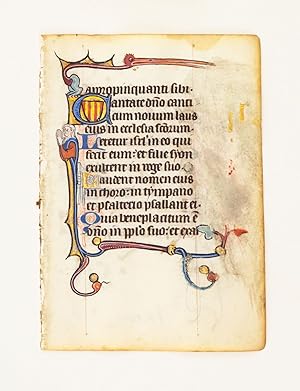 appropinquanti sibi
Cantate dño canti
cum nouum laus
eius in ecclesia scōrum
Letetur isrl in eo qui
fecit eum: et filie syon
exultent in rege suo
Laudent nomen eius
in choro: in tympano
et psalterio psallant ei
Quia beneplacitum ē
dño in pplo suo: et exal